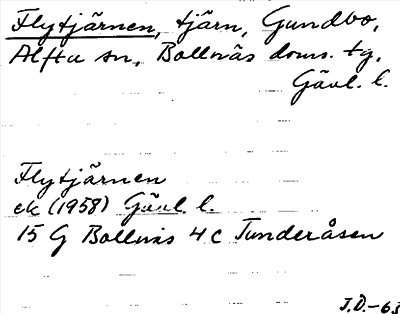 Flytjärnen, tjärn, Gundbo,
Alfta sn, Bollnäs doms. tg,
Gävl. l.
Flytjärnen
ek (1958) Gävl. l.
15 G Bollnäs 4 c Tunderåsen
J.D.-63